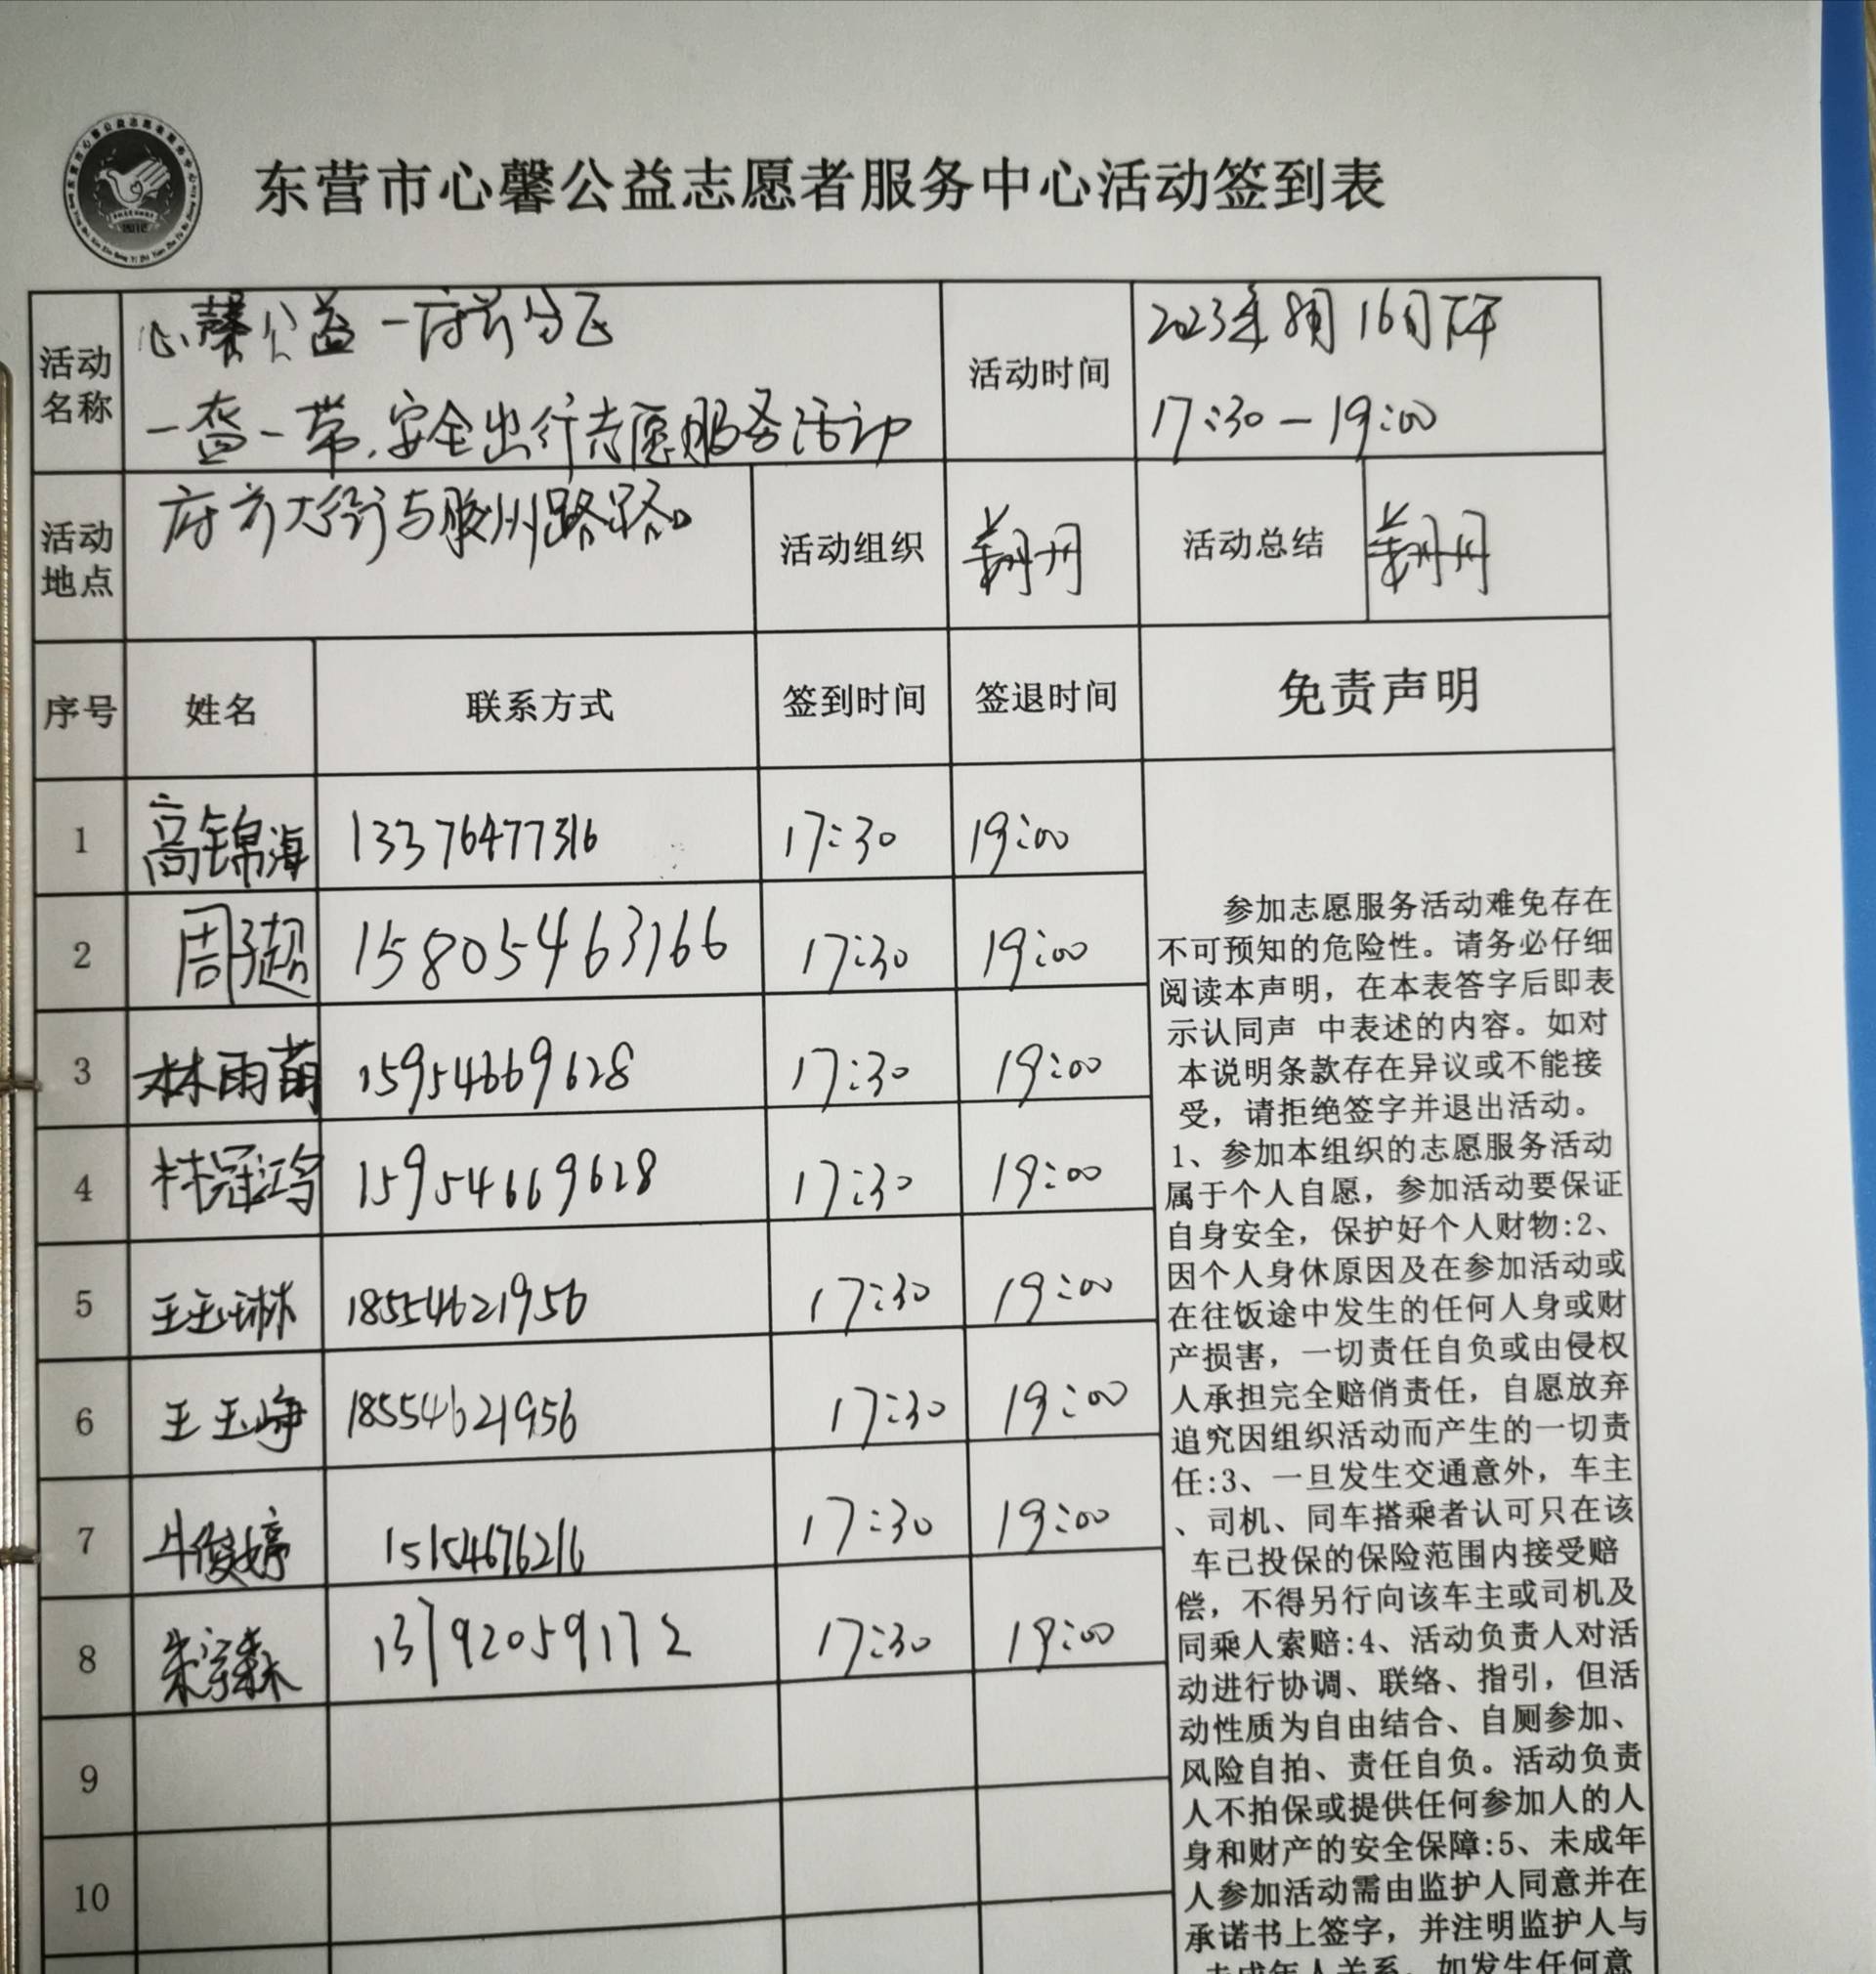 东营市心馨公益志愿者服务中心活动签到表
活动名称
心馨公益一府前分区
一盔一带.安全出行志愿服务活动
活动时间
2023年8月16日下午
17:30-19:00
活动地点
府前大街与胶州路路口
活动组织
活动总结
序号 姓名 联系方式 签到时间 签退时间 免责声明
1 高锦海 13376477316 17:30 19:00
2 周子超 15805463166 17:30 19:00
3 林雨萌 15954669628 17:30 19:00
4 林冠鸿 15954669628 17:30 19:00
5 王玉琳 18554621956 17:30 19:00
6 王玉峥 18554621956 17:30 19:00
7 牛俊婷 15154676216 17:30 19:00
8 朱宇森 13792059172 17:30 19:00
9
10
参加志愿服务活动难免存在
不可预知的危险性。请务必仔细
阅读本声明，在本表答字后即表
示认同声 中表述的内容。如对
本说明条款存在异议或不能接
受，请拒绝签字并退出活动。
1、参加本组织的志愿服务活动
属于个人自愿，参加活动要保证
自身安全，保护好个人财物:2、
因个人身休原因及在参加活动或
在往饭途中发生的任何人身或财
产损害，一切责任自负或由侵权
人承担完全赔俏责任，自愿放弃
追究因组织活动而产生的一切责
任:3、一旦发生交通意外，车主
、司机、同车搭乘者认可只在该
车已投保的保险范围内接受赔
偿，不得另行向该车主或司机及
同乘人索赔:4、活动负责人对活
动进行协调、联络、指引，但活
动性质为自由结合、自厕参加、
风险自拍、责任自负。活动负责
人不拍保或提供任何参加人的人
身和财产的安全保障:5、未成年
人参加活动需由监护人同意并在
承诺书上签字，并注明监护人与
未成年人关系。如发生任何意